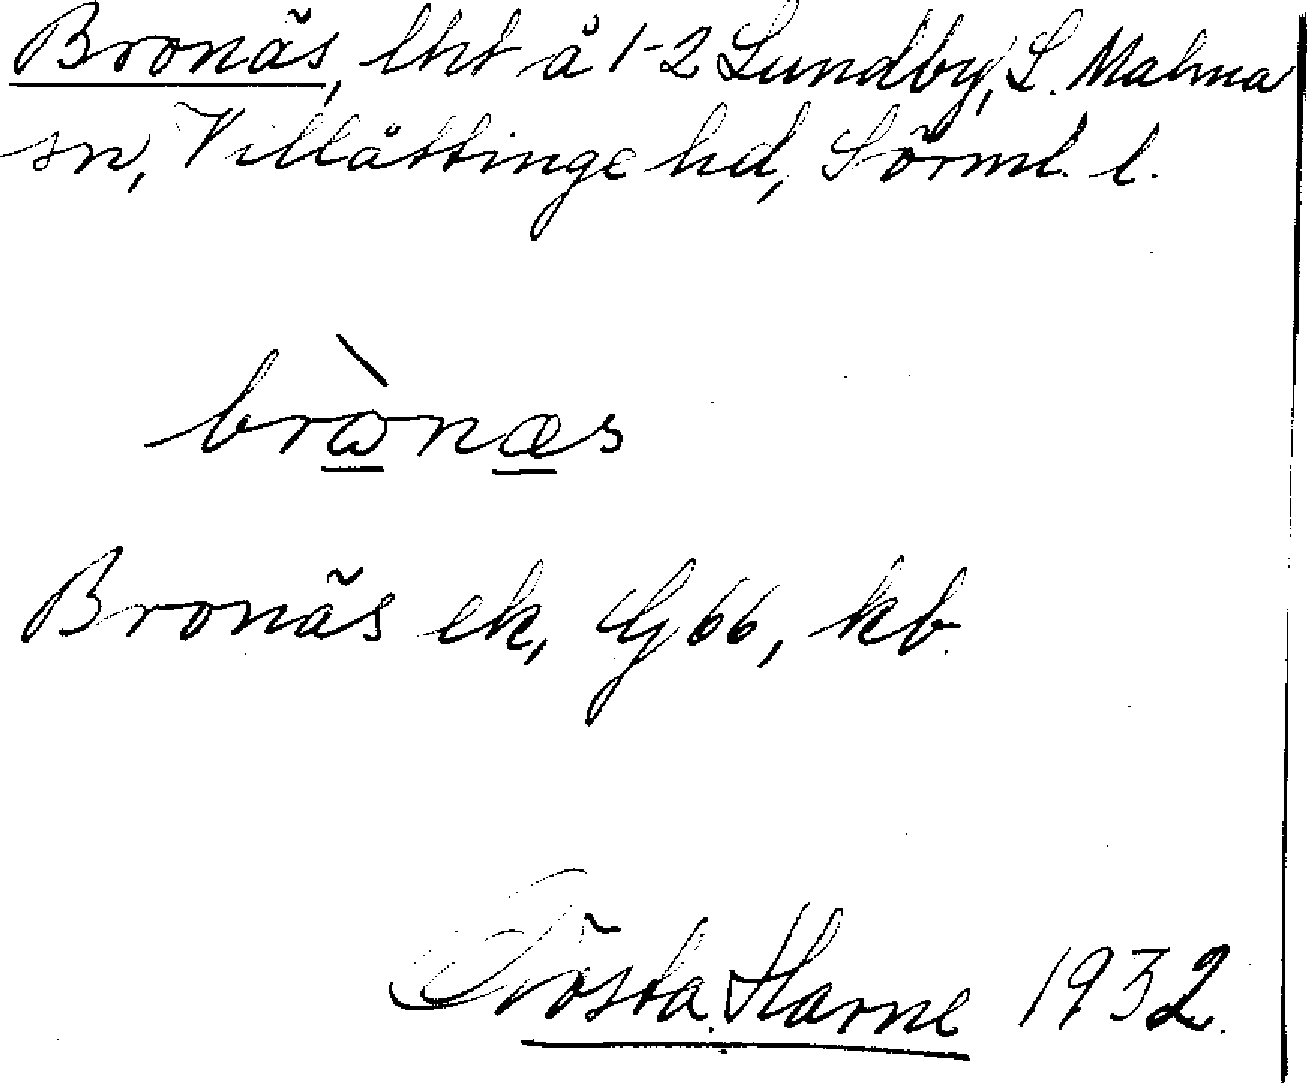 Bronäs, lht å 1-2 Lundby, L. Malma
sn, Villåttinge hd, Sörml. l.
brònæs
Bronäs ek, G 66, kb.
Gösta Harne 1932.